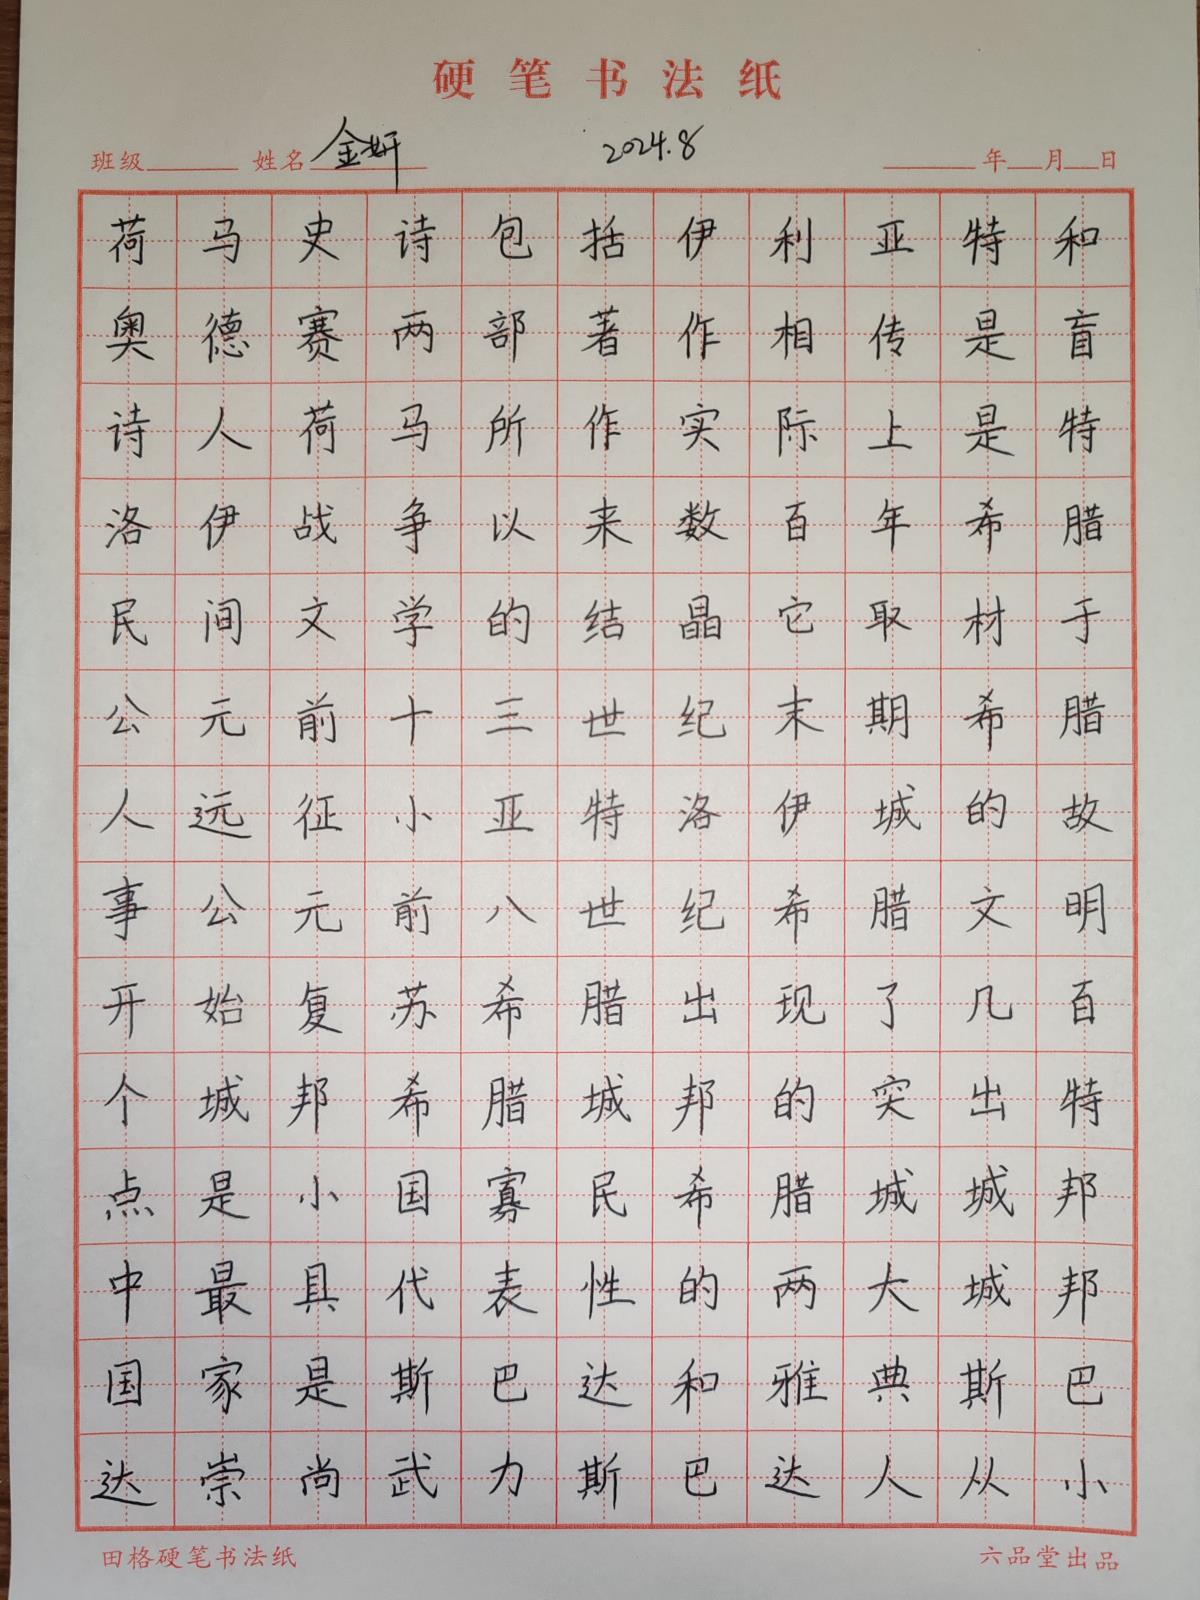 硬笔书法纸
班级 姓名 金妍 2024.8 年 月 日
荷马史诗包括伊利亚特和
奥德赛两部著作相传是盲
诗人荷马所作实际上是特
洛伊战争以来数百年希腊
民间文学的结晶它取材于
公元前十三世纪末期希腊
人远征小亚特洛伊城的故
事公元前八世纪希腊文明
开始复苏希腊出现了几百
个城邦希腊城邦的突出特
点是小国寡民希腊城城邦
中最具代表性的两大城邦
国家是斯巴达和雅典斯巴
达崇尚武力斯巴达人从小
田格硬笔书法纸 六品堂出品